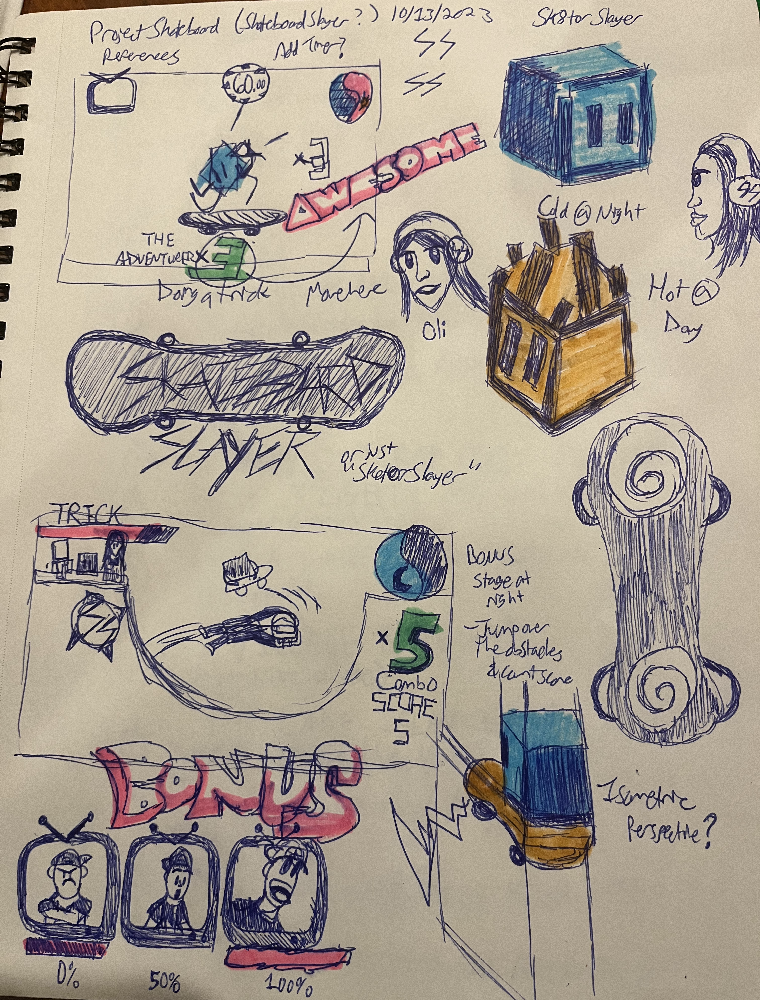 Project Skateboard (Skateboard Slayer?) 10/13/2023
Sk8tor Slayer
References
Add Timer?
60.00
x3
AWESOME
THE
ADVENTURER
x3
Doing a trick
Move here
Oli
Cold @ Night
Hot @
Day
SKATEBOARD
SLAYER
or just
"Sk8tor Slayer"
TRICK
BONUS
Stage at
night
- Jump over
the obstacles
& count score
x5
Combo
SCORE
5
BONUS
Isometric
Perspective?
0%
50%
100%